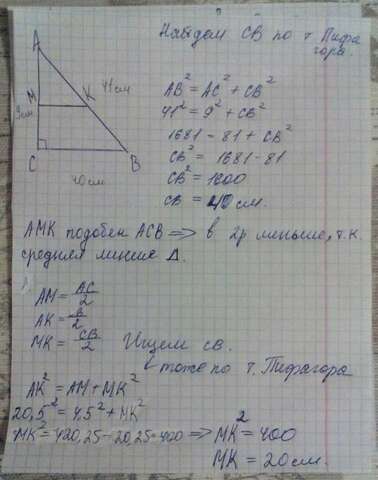 Найдем CB по т. Пифа
гора.
A
M
K
41см
9см
C
B
40см
AB² = AC² + CB²
41² = 9² + CB²
1681 = 81 + CB²
CB² = 1681 - 81
CB² = 1600
CB = 40 см.
AMK подобен ACB ⇒ в 2р меньше, т.к.
средняя линия Δ.
AM = AC/2
AK = /2
MK = CB/2 Ищем св.
тоже по т. Пифагора
AK² = AM + MK²
20,5² = 4,5² + MK²
MK² = 420,25 - 20,25 = 400 ⇒ MK² = 400
MK = 20 см.